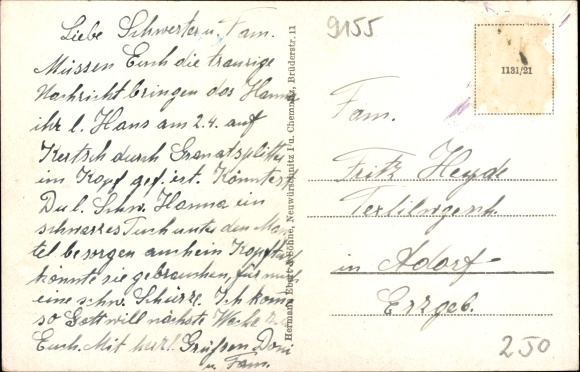 Liebe Schwester u. Fam.
Müssen Euch die traurige
Nachricht bringen das Hanna
ihr l. Hans am 2.4. auf
Kertsch durch Granatsplitter
im Kopf gef. ist. Könntest
Du l. Schw. Hanna ein
schwarzes Tuch unter den Man-
tel besorgen auch ein Kopftuch
könnte sie gebrauchen, für mich
eine schw. Schürze. Ich komme
so Gott will nächste Woche zu
Euch. Mit herzl. Grüßen Doni
u. Fam.
Hermann Ebert & Söhne, Neuwürschnitz i/u. Chemnitz, Brüderstr. 11
9155
1131/21
Fam.
Fritz Heyde
Textilwgesch.
in Adorf
Erzgeb.
250